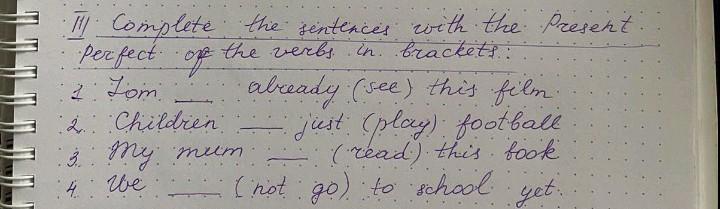 III Complete the sentences with the Present
Perfect of the verbs in brackets:
1. Tom ___ already (see) this film.
2. Children ___ just (play) football
3. My mum ___ (read) this book
4. We ___ (not go) to school yet.